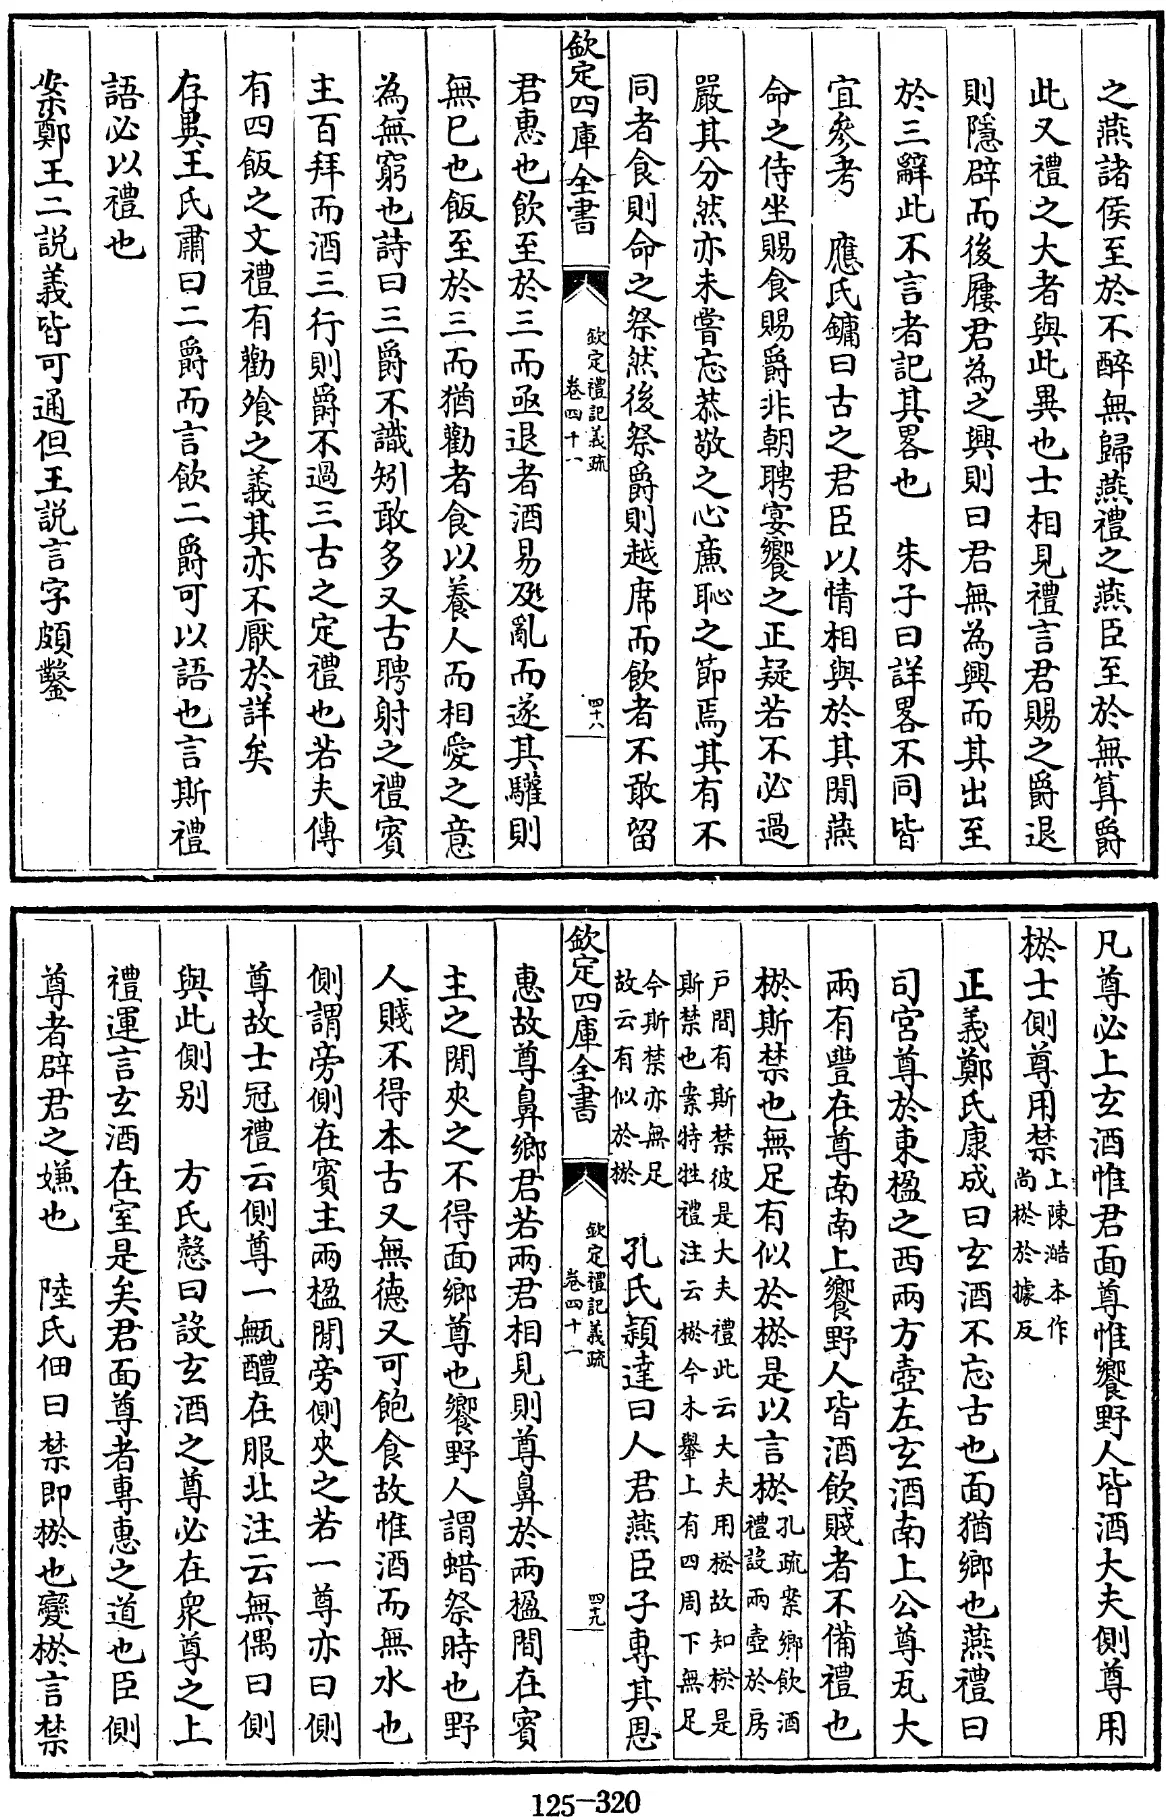 之燕諸侯至於不醉無歸燕禮之燕臣至於無算爵
此又禮之大者與此異也士相見禮言君賜之爵退
則隱辟而後屨君為之興則曰君無為興而其出至
於三辭此不言者記其畧也　朱子曰詳畧不同皆
宜參考　應氏鏞曰古之君臣以情相與於其閒燕
命之侍坐賜食賜爵非朝聘宴饗之正疑若不必過
嚴其分然亦未嘗忘恭敬之心廉恥之節焉其有不
同者食則命之祭然後祭爵則越席而飲者不敢留
欽定四庫全書
欽定禮記義疏
卷四十一
四十八
君惠也飲至於三而亟退者酒易及亂而遂其驩則
無已也飯至於三而猶勸者食以養人而相愛之意
為無窮也詩曰三爵不識矧敢多又古聘射之禮賓
主百拜而酒三行則爵不過三古之定禮也若夫傳
有四飯之文禮有勸飱之義其亦不厭於詳矣
存異王氏肅曰二爵而言飲二爵可以語也言斯禮
語必以禮也
案鄭王二説義皆可通但王説言字頗鑿
凡尊必上玄酒惟君面尊惟饗野人皆酒大夫側尊用
棜士側尊用禁上陳澔本作
尚棜於據反
正義鄭氏康成曰玄酒不忘古也面猶鄉也燕禮曰
司宮尊於東楹之西兩方壺左玄酒南上公尊瓦大
兩有豐在尊南南上饗野人皆酒飲賤者不備禮也
棜斯禁也無足有似於棜是以言棜孔疏案鄉飲酒
禮設兩壺於房
戸間有斯禁彼是大夫禮此云大夫用棜故知棜是
斯禁也案特牲禮注云棜今木轝上有四周下無足
今斯禁亦無足
故云有似於棜　孔氏穎達曰人君燕臣子專其恩
欽定四庫全書
欽定禮記義疏
卷四十一
四十九
惠故尊鼻鄉君若兩君相見則尊鼻於兩楹間在賓
主之閒夾之不得面鄉尊也饗野人謂蜡祭時也野
人賤不得本古又無德又可飽食故惟酒而無水也
側謂旁側在賓主兩楹閒旁側夾之若一尊亦曰側
尊故士冠禮云側尊一甒醴在服北注云無偶曰側
與此側别　方氏慤曰設玄酒之尊必在衆尊之上
禮運言玄酒在室是矣君面尊者專惠之道也臣側
尊者辟君之嫌也　陸氏佃曰禁即棜也變棜言禁
125-320